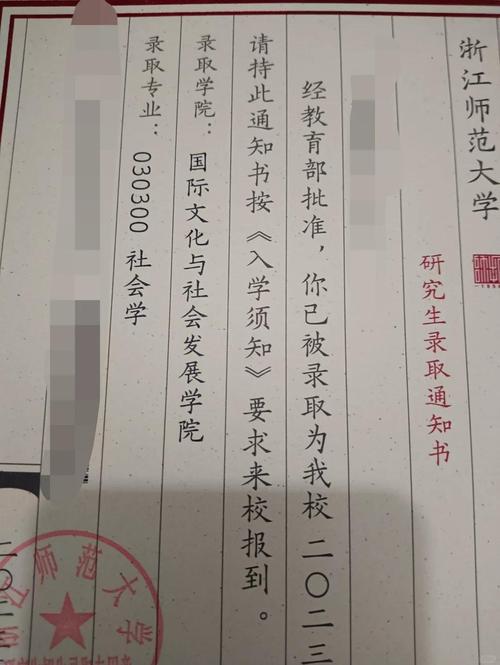 浙江师范大学
研究生录取通知书
经教育部批准，你已被录取为我校二〇二三
请持此通知书按《入学须知》要求来校报到。
录取学院：国际文化与社会发展学院
录取专业：030300 社会学
二〇二
师范大学